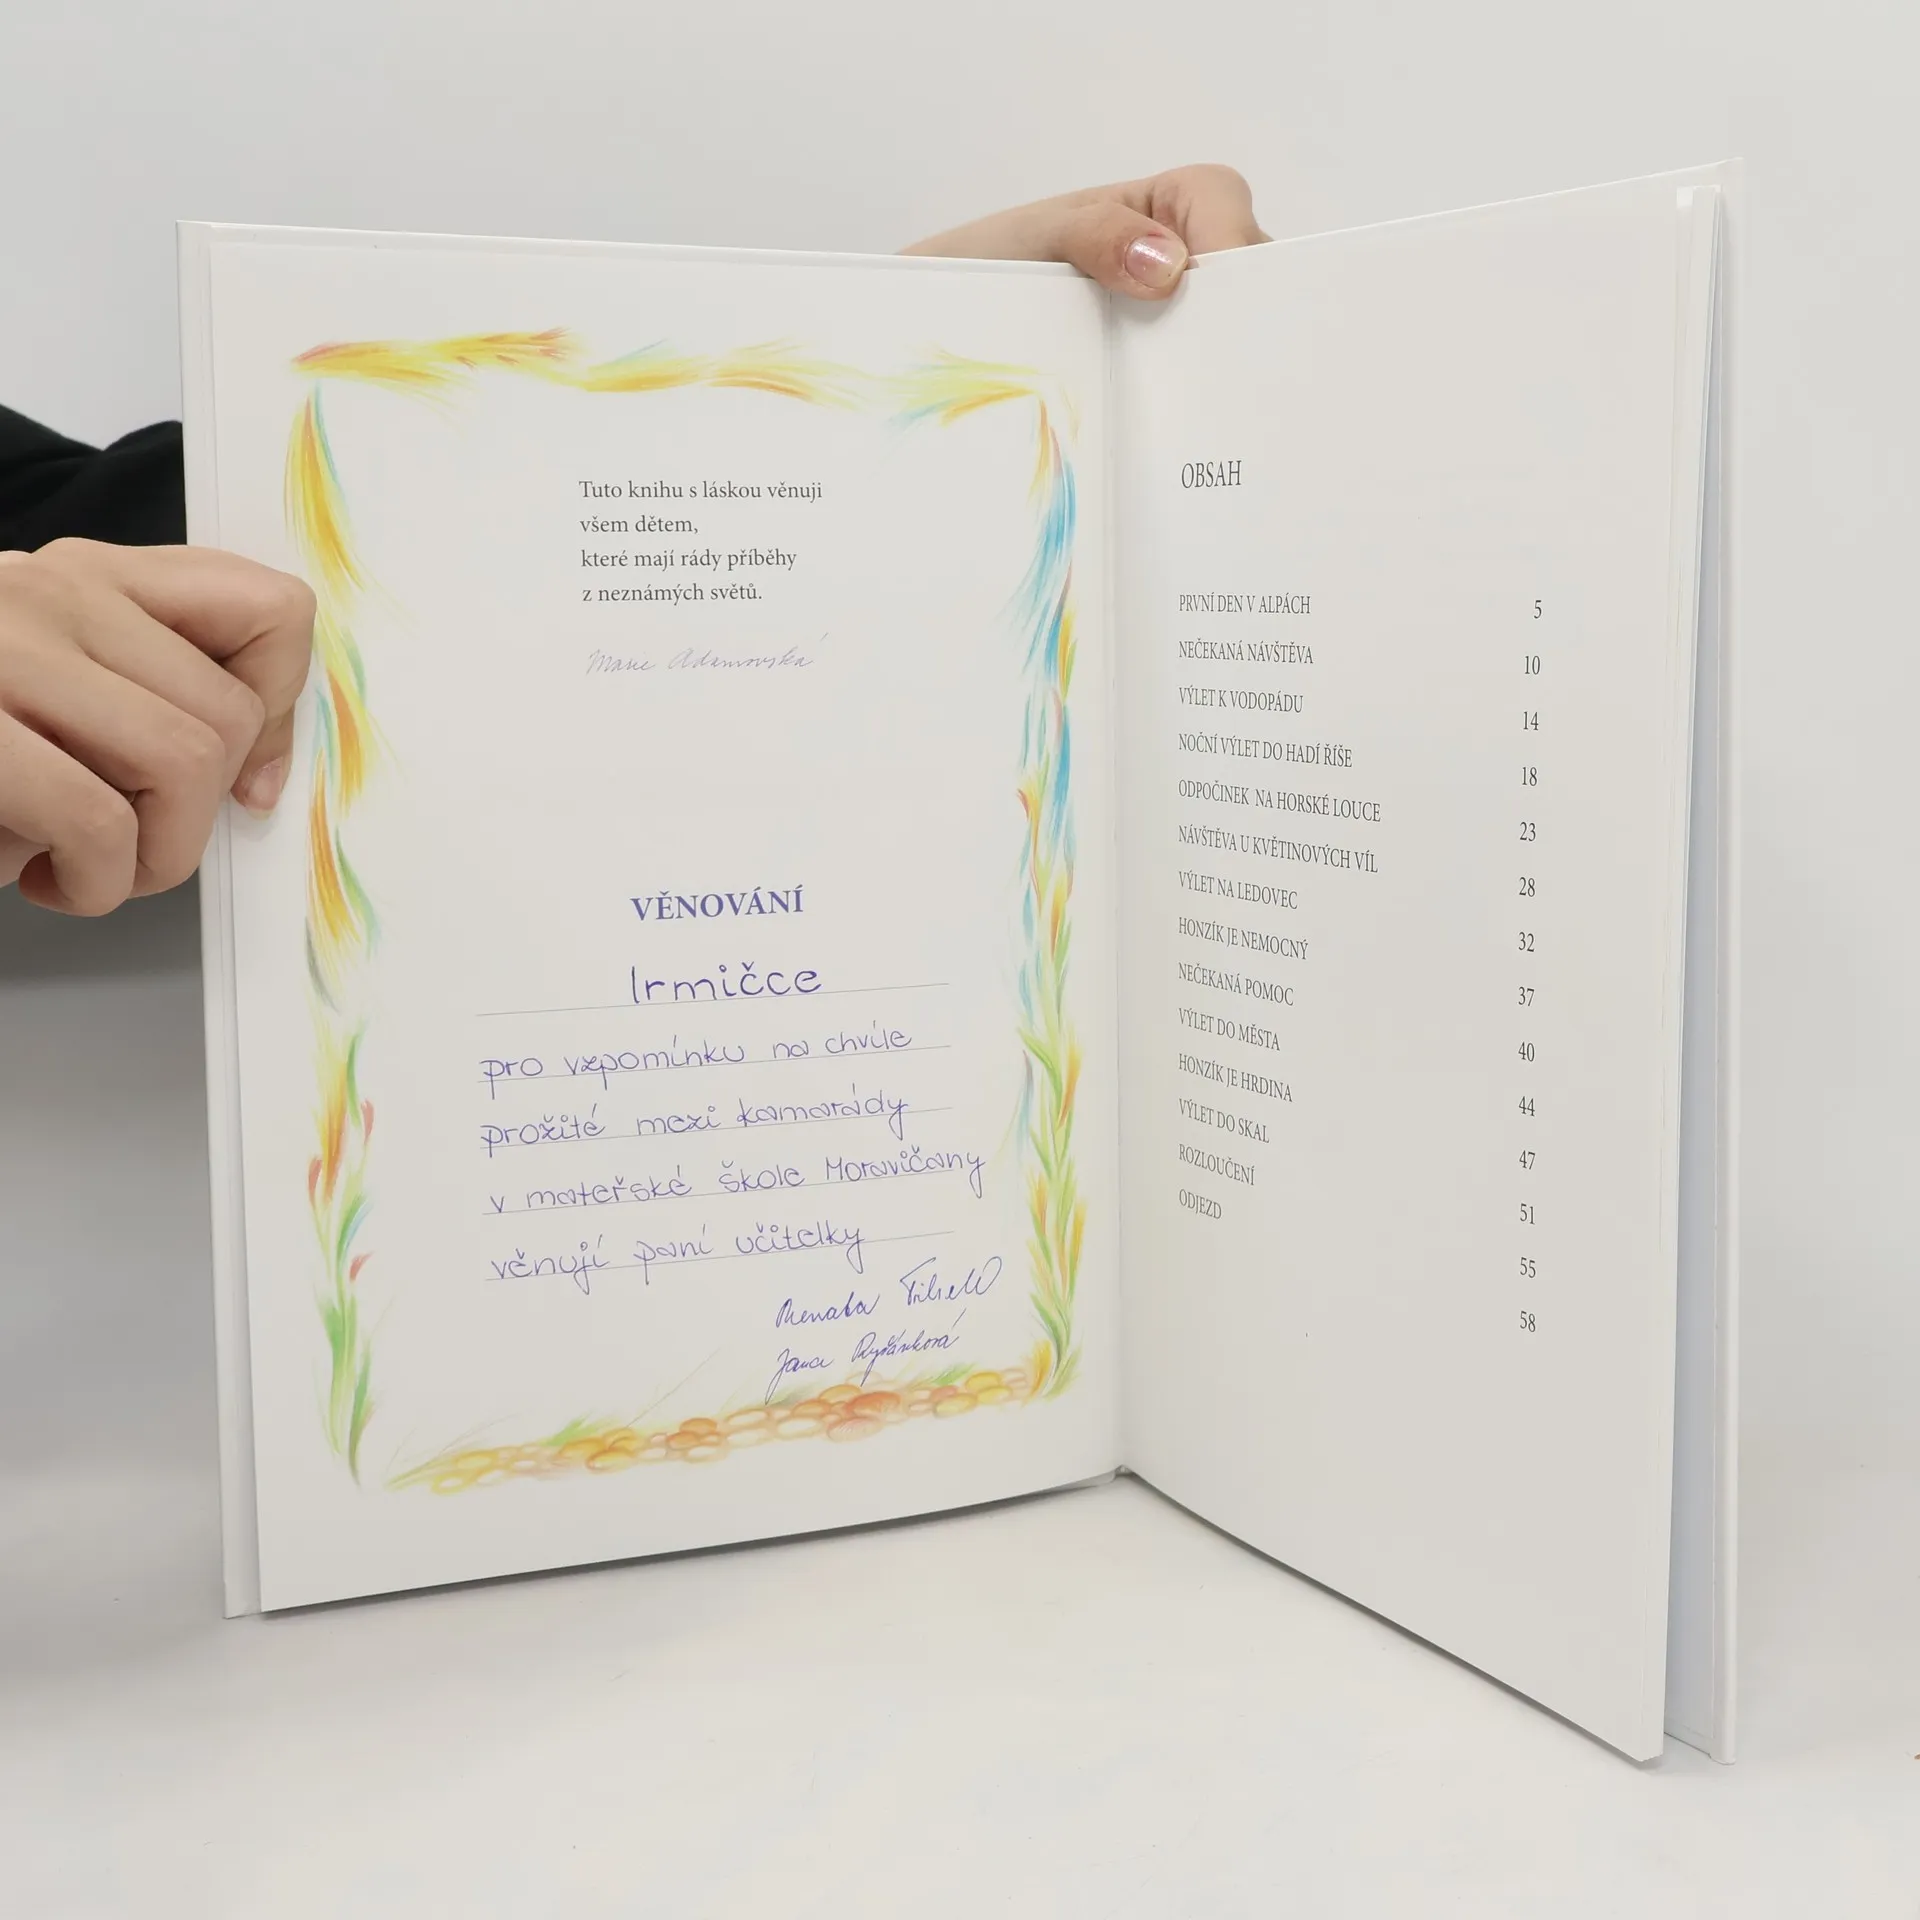 Tuto knihu s láskou věnuji
všem dětem,
které mají rády příběhy
z neznámých světů.
Marie Adamovská
VĚNOVÁNÍ
Irmičce
pro vzpomínku na chvíle
prožité mezi kamarády
v mateřské škole Moravičany
věnují paní učitelky
Renata
Jana Ryšánková
OBSAH
PRVNÍ DEN V ALPÁCH 5
NEČEKANÁ NÁVŠTĚVA 10
VÝLET K VODOPÁDU 14
NOČNÍ VÝLET DO HADÍ ŘÍŠE 18
ODPOČINEK NA HORSKÉ LOUCE 23
NÁVŠTĚVA U KVĚTINOVÝCH VÍL 28
VÝLET NA LEDOVEC 32
HONZÍK JE NEMOCNÝ 37
NEČEKANÁ POMOC 40
VÝLET DO MĚSTA 44
HONZÍK JE HRDINA 47
VÝLET DO SKAL 51
ROZLOUČENÍ 55
ODJEZD 58